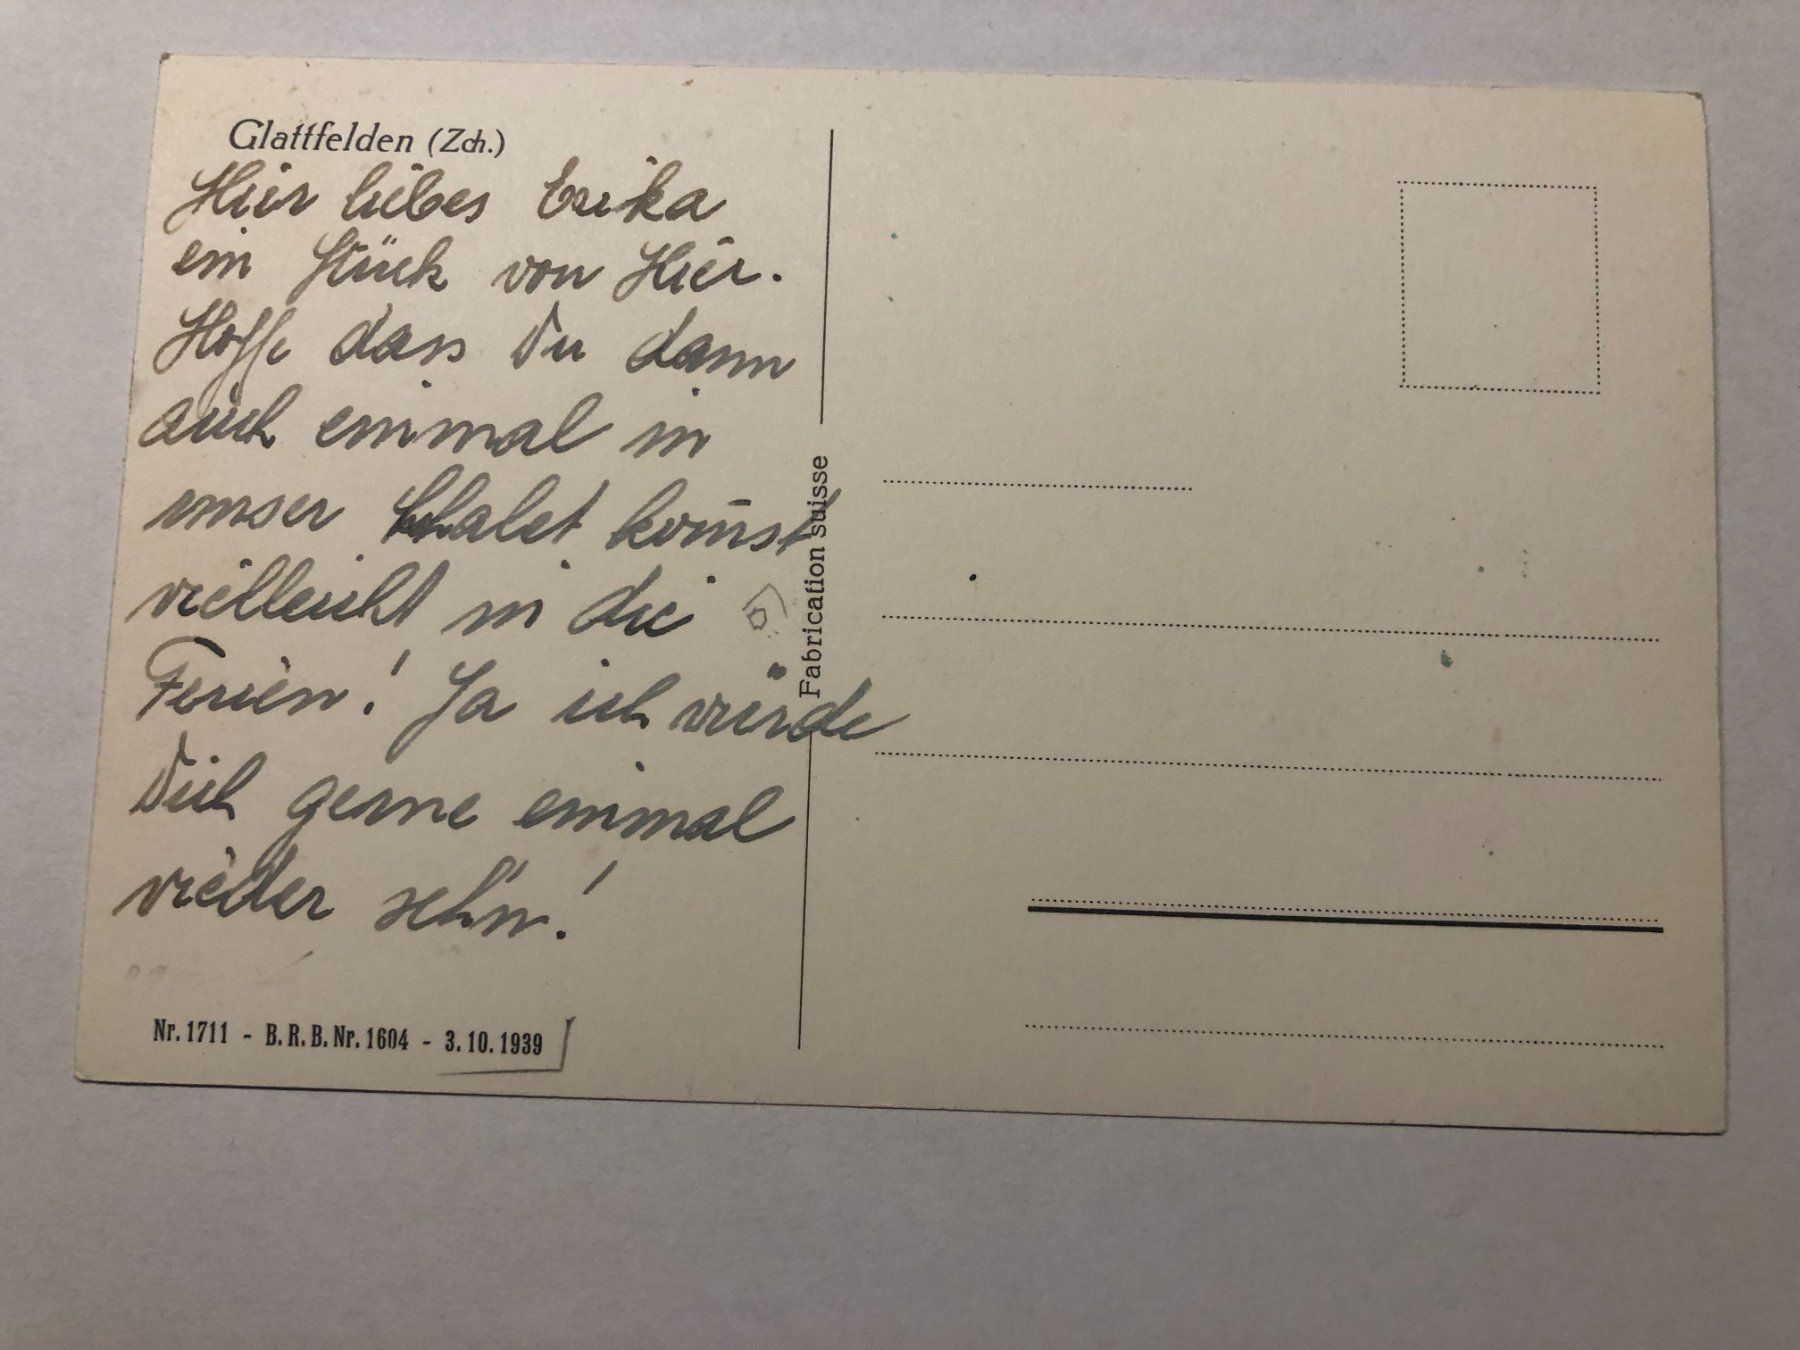 Glattfelden (Zch.)
Hier liebes Erika
ein Stück von Hier.
Hoffe dass Du dann
auch einmal in
unser Chalet kom̄st
vielleicht in die
Ferien! Ja ich würde
Dich gerne einmal
wieder seh'n!
Nr. 1711 - B. R. B. Nr. 1604 - 3. 10. 1939
Fabrication suisse